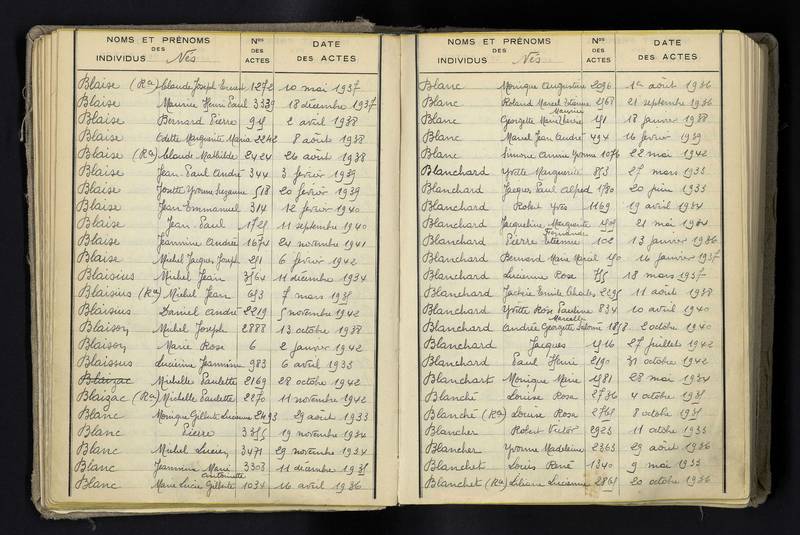 NOMS ET PRÉNOMS DES INDIVIDUS Nés
Nos DES ACTES
DATE DES ACTES
Blaise (Ra) Claude Joseph Ernest 1272 10 mai 1937
Blaise Maurice Henri Paul 3339 18 décembre 1937
Blaise Bernard Pierre 2 avril 1938
Blaise Odette Marguerite Maria 2242 8 août 1938
Blaise (Ra) Claude Mathilde 2424 26 août 1938
Blaise Jean Paul André 344 3 février 1939
Blaise Josette Yvonne Suzanne 518 20 février 1939
Blaise Jean Emmanuel 314 12 février 1940
Blaise Jean Paul 11 septembre 1940
Blaise Jeannine Andrée 1674 24 novembre 1941
Blaise Michel Jacques Joseph 6 février 1942
Blaisius Michel Jean 11 décembre 1934
Blaisius (Ra) Michel Jean 7 mars
Blaisius Daniel André 2219 5 novembre 1942
Blaison Michel Joseph 2888 13 octobre 1938
Blaison Marie Rose 6 2 janvier 1942
Blaissus Lucienne Jeannine 983 6 avril 1933
Blaizac Michelle Paulette 2169 28 octobre 1942
Blaizac (Ra) Michelle Paulette 2270 11 novembre 1942
Blanc Monique Gilberte Lucienne 2493 29 août 1933
Blanc Pierre 19 novembre 1934
Blanc Michel Lucien 3471 29 novembre 1934
Blanc Jeannine Marie Antoinette 3308 11 décembre
Blanc Marie Lucie Gilberte 1034 16 avril 1936
NOMS ET PRÉNOMS DES INDIVIDUS Nés
Nos DES ACTES
DATE DES ACTES
Blanc Monique Augustine 2096 1er août 1936
Blanc Roland Marcel Etienne Maurice 21 septembre 1936
Blanc Georgette Marie Pierre 18 janvier 1938
Blanc Marcel Jean André 494 16 février 1939
Blanc Simone Annie Yvonne 1076 22 mai 1942
Blanchard Yvette Marguerite 27 mars 1933
Blanchard Jacques Paul Alfred 20 juin 1933
Blanchard Robert Yves 1169 19 avril 1934
Blanchard Jacqueline Marguerite Fernande 21 mai 1934
Blanchard Pierre Etienne 102 13 janvier 1936
Blanchard Bernard Marie Marcel 16 janvier 1937
Blanchard Lucienne Rose 18 mars 1937
Blanchard Emile Charles 11 août 1938
Blanchard Yvette Rose Pauline 834 10 avril 1940
Blanchard Andrée Georgette Salomé Marcelle 2 octobre 1940
Blanchard Jacques 27 juillet 1942
Blanchard Paul Henri 2190 31 octobre 1942
Blanchart Monique Marie 1981 28 mai 1934
Blanché Louise Rose 2736 4 octobre
Blanché (Ra) Louise Rose 8 octobre
Blancher Robert Victor 2923 11 octobre 1933
Blancher Yvonne Madeleine 2363 29 août 1936
Blanchet Louis René 1340 9 mai 1933
Blanchet (Ra) Liliane Lucienne 20 octobre 1936